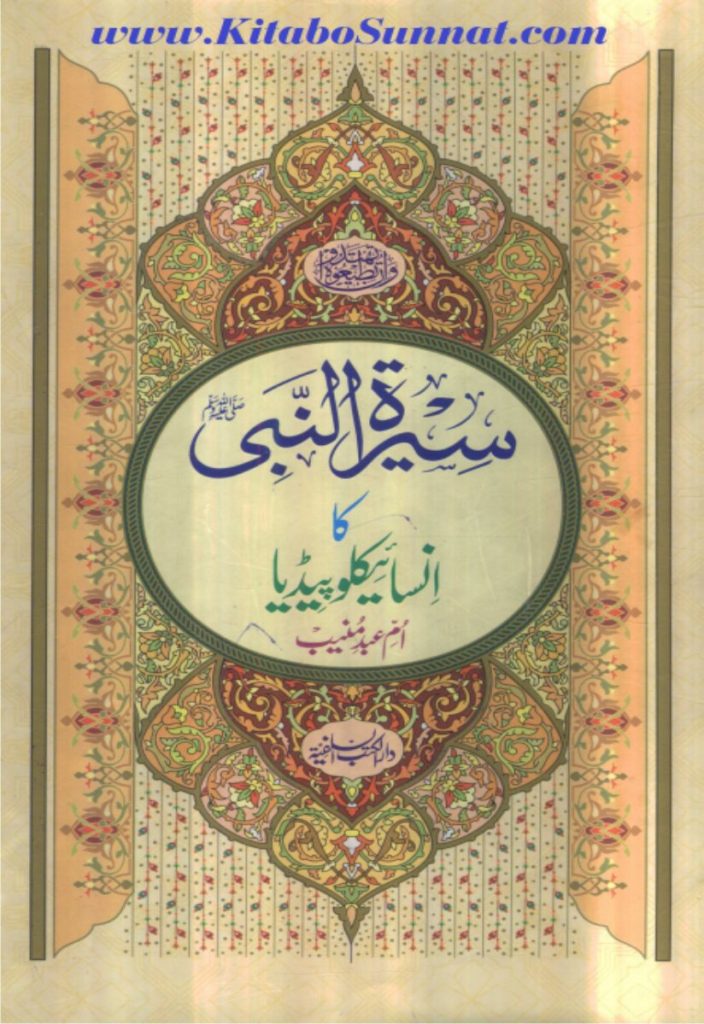 www.KitaboSunnat.com
وإن تطيعوه تهتدوا
سِيرة النَّبی صَلَّى اللهُ عَلَيْهِ وَسَلَّم
کا
انسائیکلوپیڈیا
اُمِّ عبد مُنیب
دار الکتب السلفیة